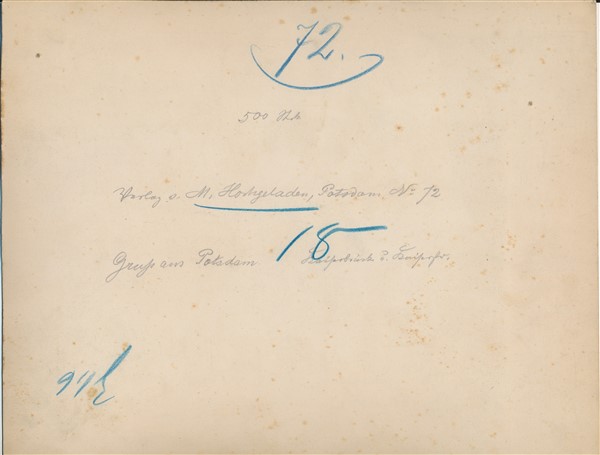 72.
500 Stk
Verlag v. M. Hochgeladen, Potsdam No 72
18
Gruß aus Potsdam